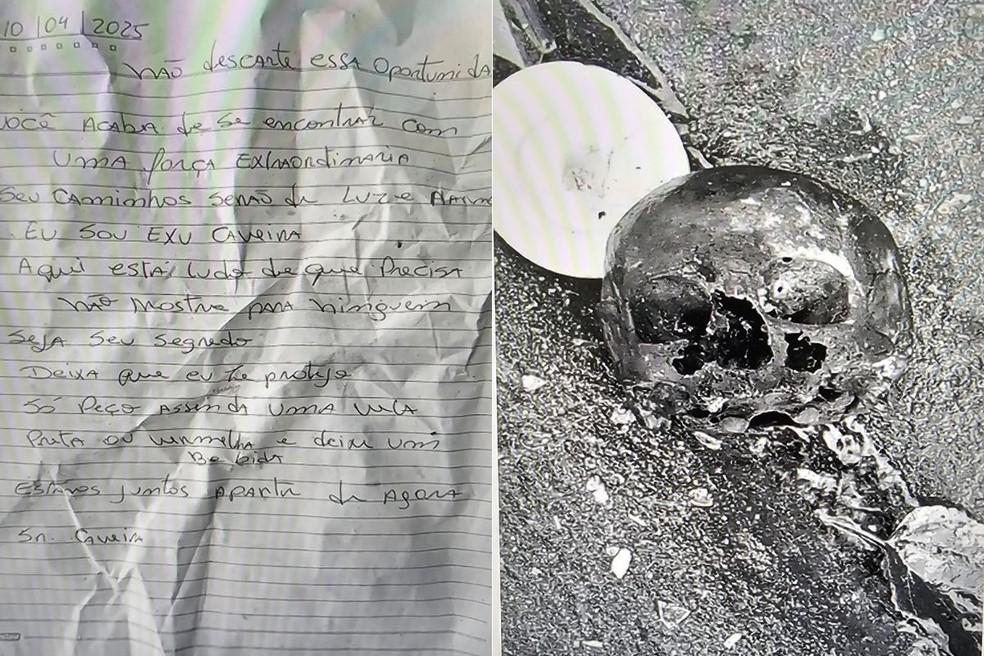 10 | 04 | 2025
NÃO descarte essa oportunida
Você Acaba de se encontrar com
UMA força EXtraordinaria
Seu Caminhos Serão de Luz e
EU SOU EXU CAVEIRA
Aqui está tudo de que Precisa
Não Mostre para ninguem
Seja Seu Segredo
Deixa que eu te proteja
Só Peço Assenda UMA vela
Preta ou vermelha e deixe um
Bebida
Estamos juntos Apartir de Agora
Sr. Caveira